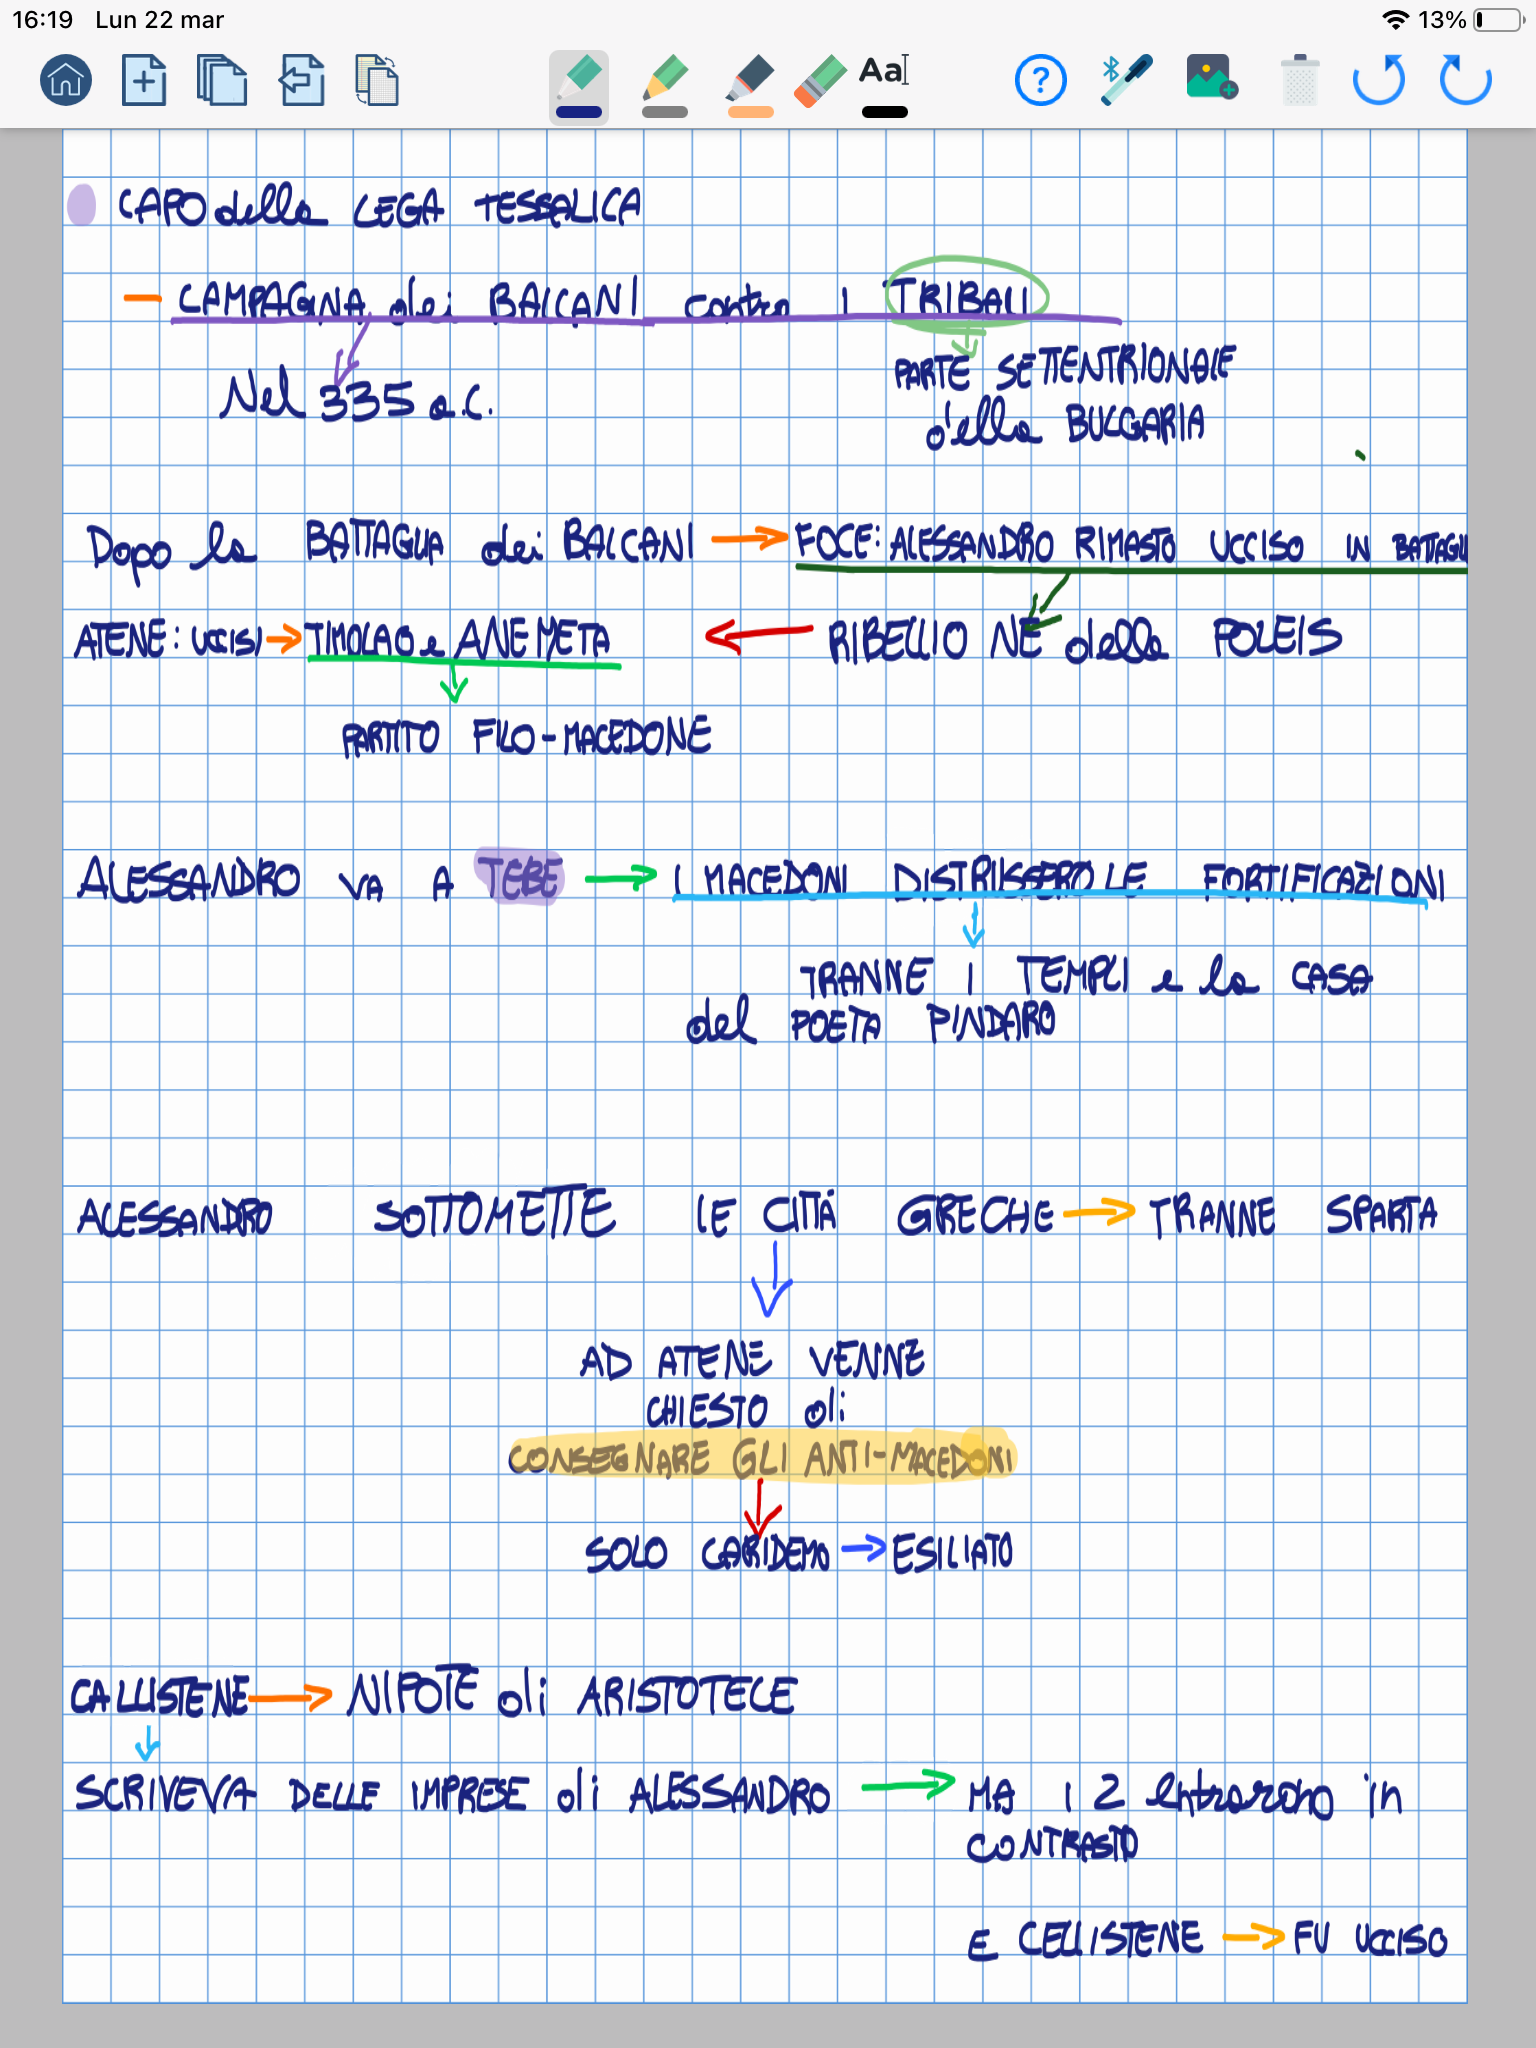 16:19 Lun 22 mar 13%
Aa
?
CAPO della LEGA TESSALICA
CAMPAGNA dei BALCANI contro I TRIBALI
PARTE SETTENTRIONALE
Nel 335 a.C.
della BULGARIA
Dopo la BATTAGLIA dei BALCANI → FOCE: ALESSANDRO RIMASTO UCCISO IN BATTAGLI
ATENE: UCCISI → TIMOLAO e ANEMETA ← RIBELLIONE delle POLEIS
PARTITO FILO-MACEDONE
ALESSANDRO VA A TEBE → I MACEDONI DISTRUSSERO LE FORTIFICAZIONI
TRANNE I TEMPLI e la CASA
del POETA PINDARO
ALESSANDRO SOTTOMETTE LE CITTÀ GRECHE → TRANNE SPARTA
AD ATENE VENNE
CHIESTO di
CONSEGNARE GLI ANTI-MACEDONI
SOLO CARIDEMO → ESILIATO
CALLISTENE → NIPOTE di ARISTOTELE
SCRIVEVA DELLE IMPRESE di ALESSANDRO → MA I 2 entrarono in
CONTRASTO
E CELLISTENE → FU UCCISO